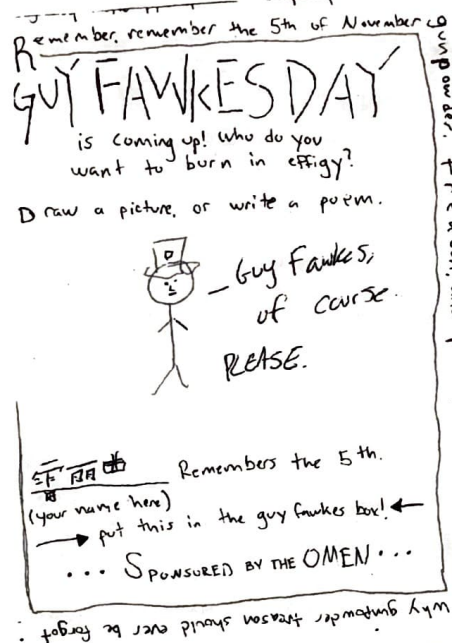 Remember, remember the 5th of November
Gunpowder, treason, and
GUY FAWKES DAY
is coming up! Who do you
want to burn in effigy?
Draw a picture, or write a poem.
D
Guy Fawkes,
of course.
PLEASE.
Remembers the 5th.
(your name here)
put this in the guy fawkes box!
... SPONSURED BY THE OMEN ...
why gunpowder treason should ever be forgot